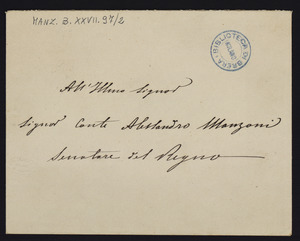 MANZ. B. XXVII. 97/2
BIBLIOTECA DI BRERA
All' Illmo Signor
Signor Conte Alessandro Manzoni
Senatore del Regno